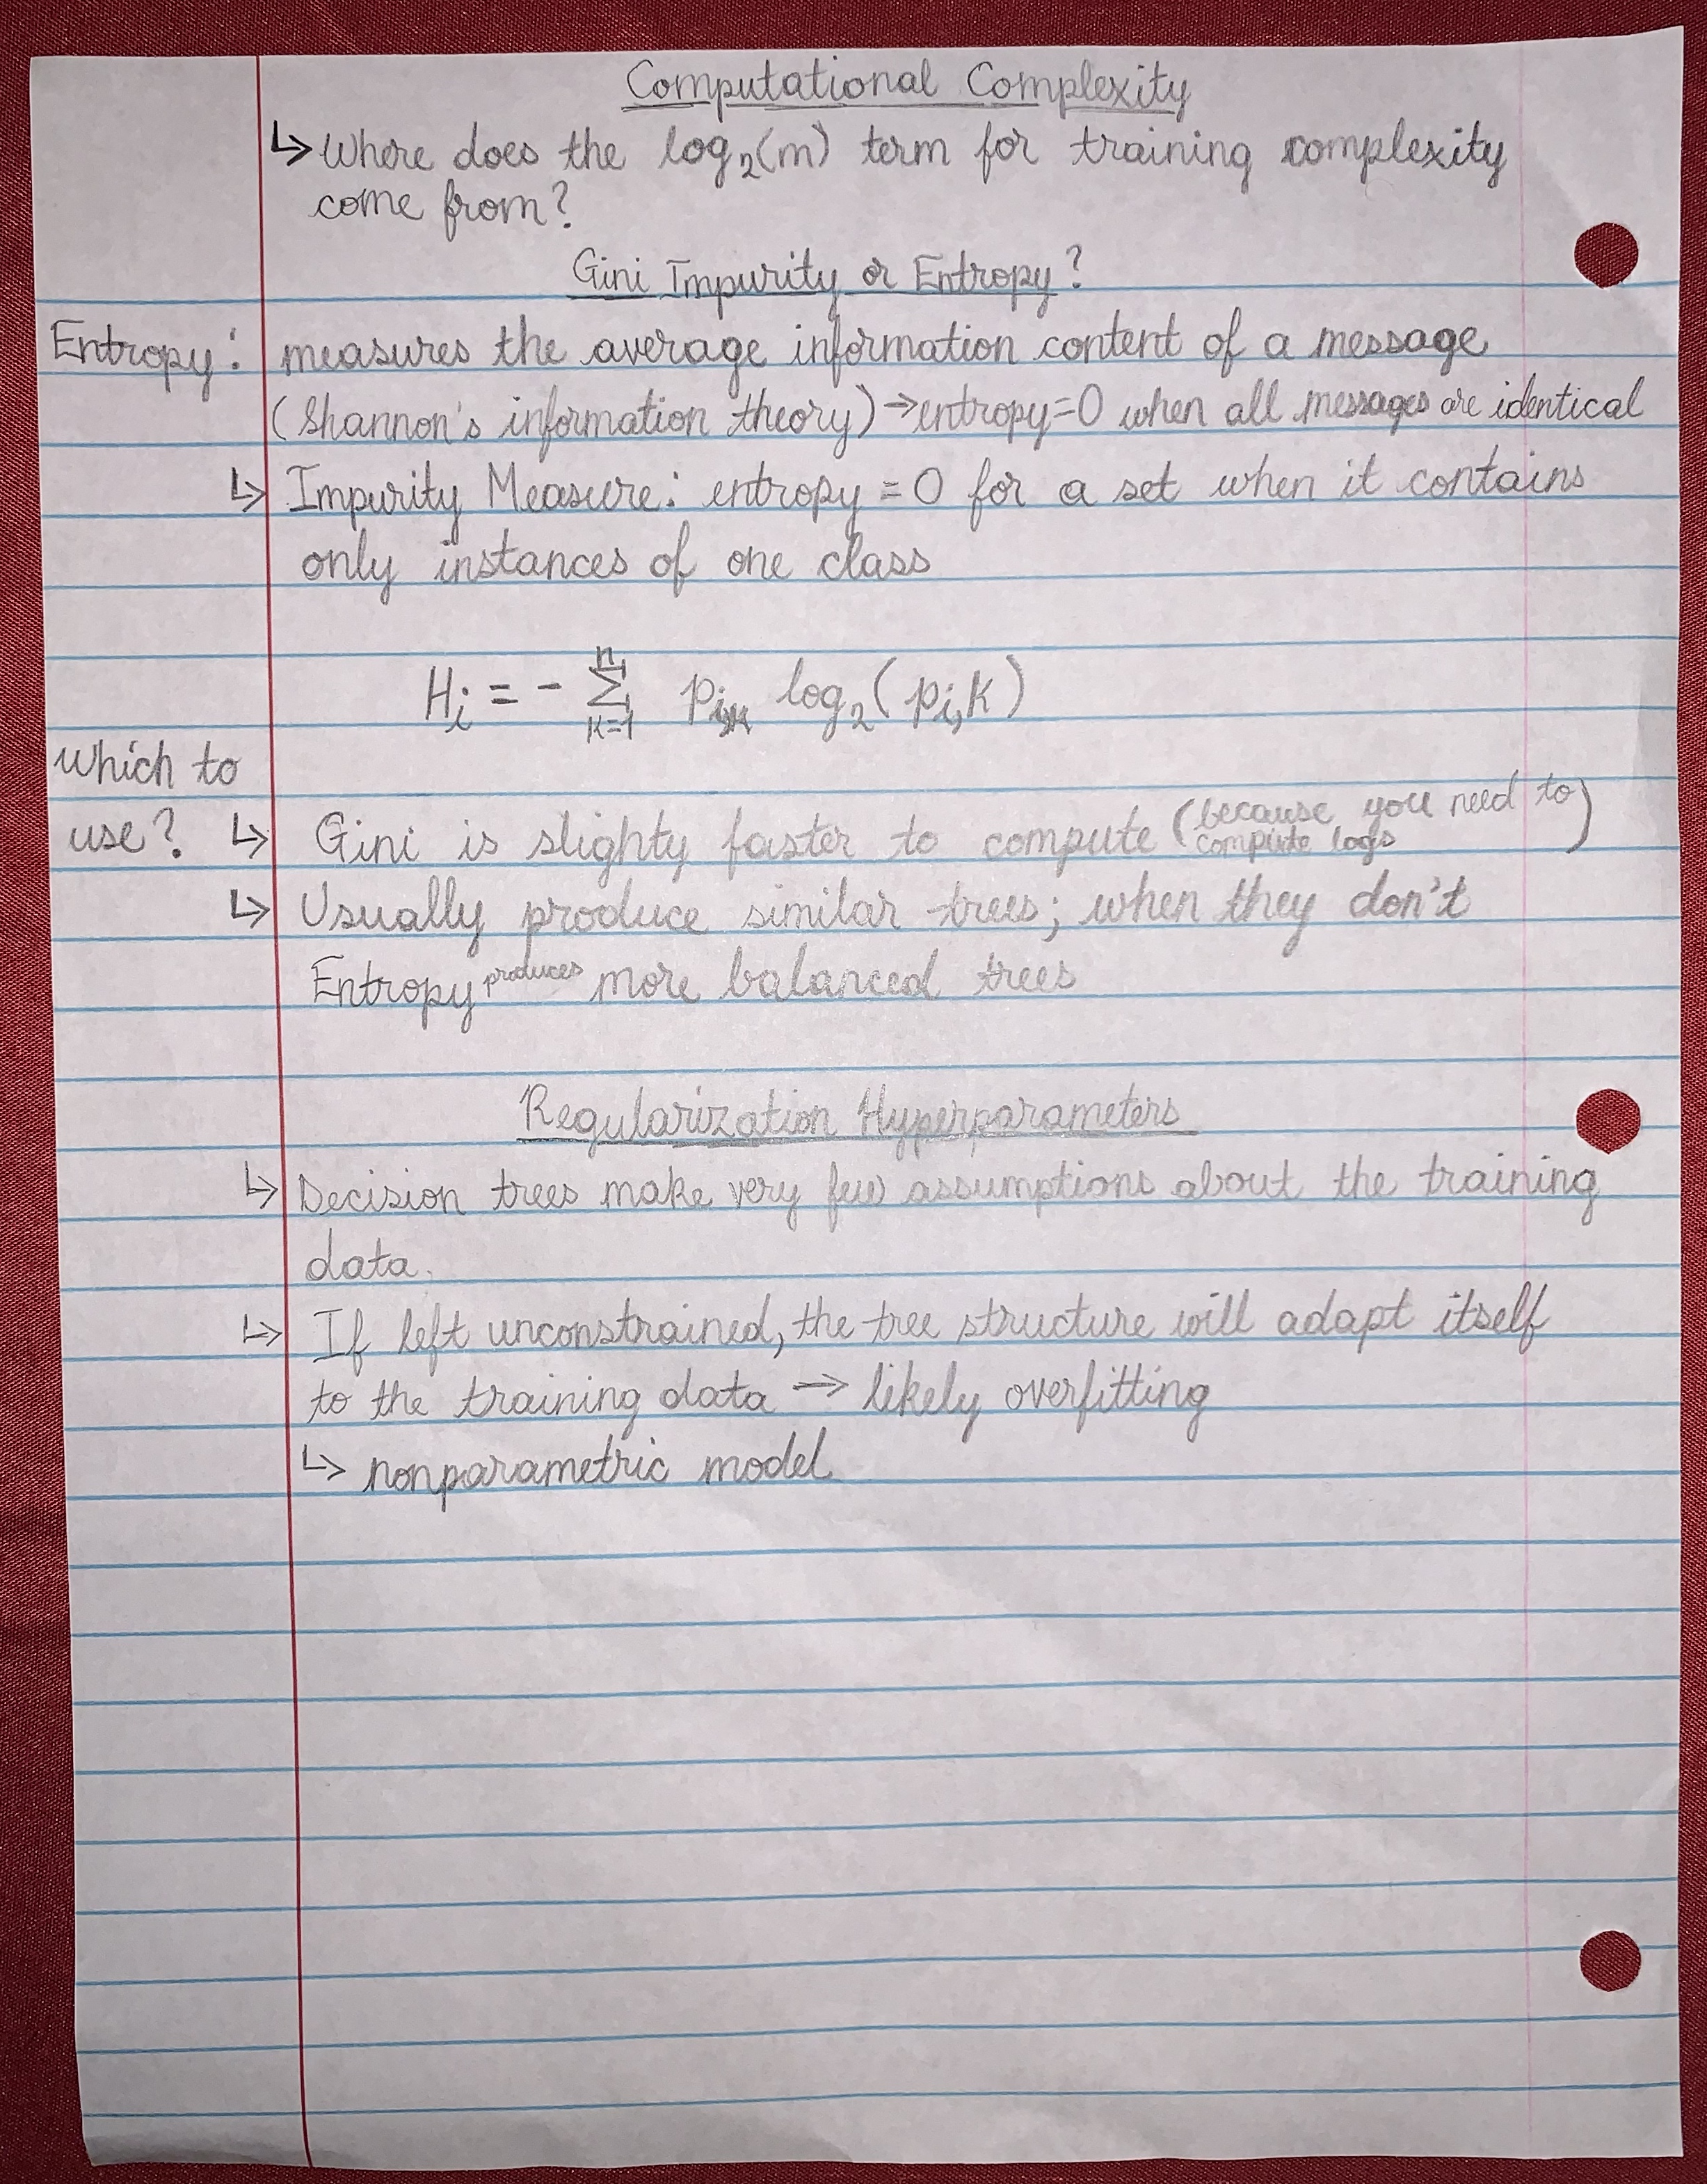 Computational Complexity
↳ Where does the log₂(m) term for training complexity
come from?
Gini Impurity or Entropy?
Entropy: measures the average information content of a message
(Shannon's information theory) → entropy=0 when all messages are identical
↳ Impurity Measure: entropy = 0 for a set when it contains
only instances of one class
n
Hᵢ = - Σ pᵢ,ₖ log₂(pᵢ,k)
k=1
Which to
use? ↳ Gini is slighty faster to compute (because you need to
compute logs)
↳ Usually produce similar trees; when they don't
Entropy produces more balanced trees
Regularization Hyperparameters
↳ Decision trees make very few assumptions about the training
data.
↳ If left unconstrained, the tree structure will adapt itself
to the training data → likely overfitting
↳ nonparametric model